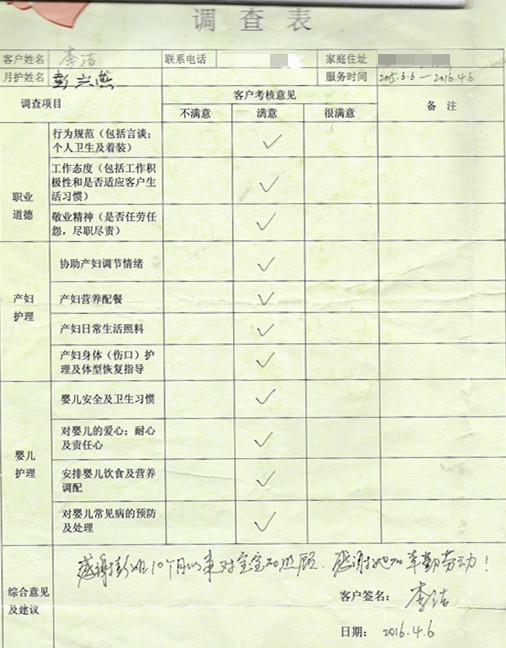 调查表
客户姓名 李洁 联系电话 家庭住址
月护姓名 彭兴燕 服务时间 2015.6.6—2016.4.6
调查项目 客户考核意见 备注
不满意 满意 很满意
职业道德
行为规范（包括言谈；
个人卫生及着装） ✓
工作态度（包括工作积
极性和是否适应客户生
活习惯） ✓
敬业精神（是否任劳任
怨，尽职尽责） ✓
产妇护理
协助产妇调节情绪 ✓
产妇营养配餐 ✓
产妇日常生活照料 ✓
产妇身体（伤口）护
理及体型恢复指导 ✓
婴儿护理
婴儿安全及卫生习惯 ✓
对婴儿的爱心；耐心
及责任心 ✓
安排婴儿饮食及营养
调配 ✓
对婴儿常见病的预防
及处理 ✓
综合意见
及建议
感谢彭姐10个月以来对宝宝的照顾．感谢她的辛勤劳动！
客户签名： 李洁
日期： 2016.4.6